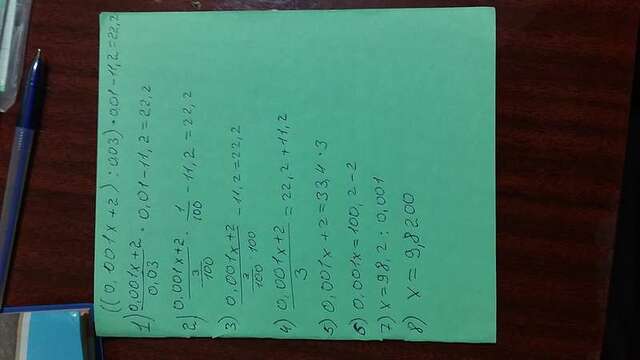 ((0,001x+2):0,03)·0,01-11,2=22,2
1) 0,001x+2/0,03 · 0,01-11,2=22,2
2) 0,001x+2/(3/100) · 1/100 -11,2=22,2
3) 0,001x+2/(3/100 · 100) -11,2=22,2
4) 0,001x+2/3 = 22,2+11,2
5) 0,001x+2=33,4·3
6) 0,001x=100,2-2
7) x=98,2:0,001
8) x=9,8200